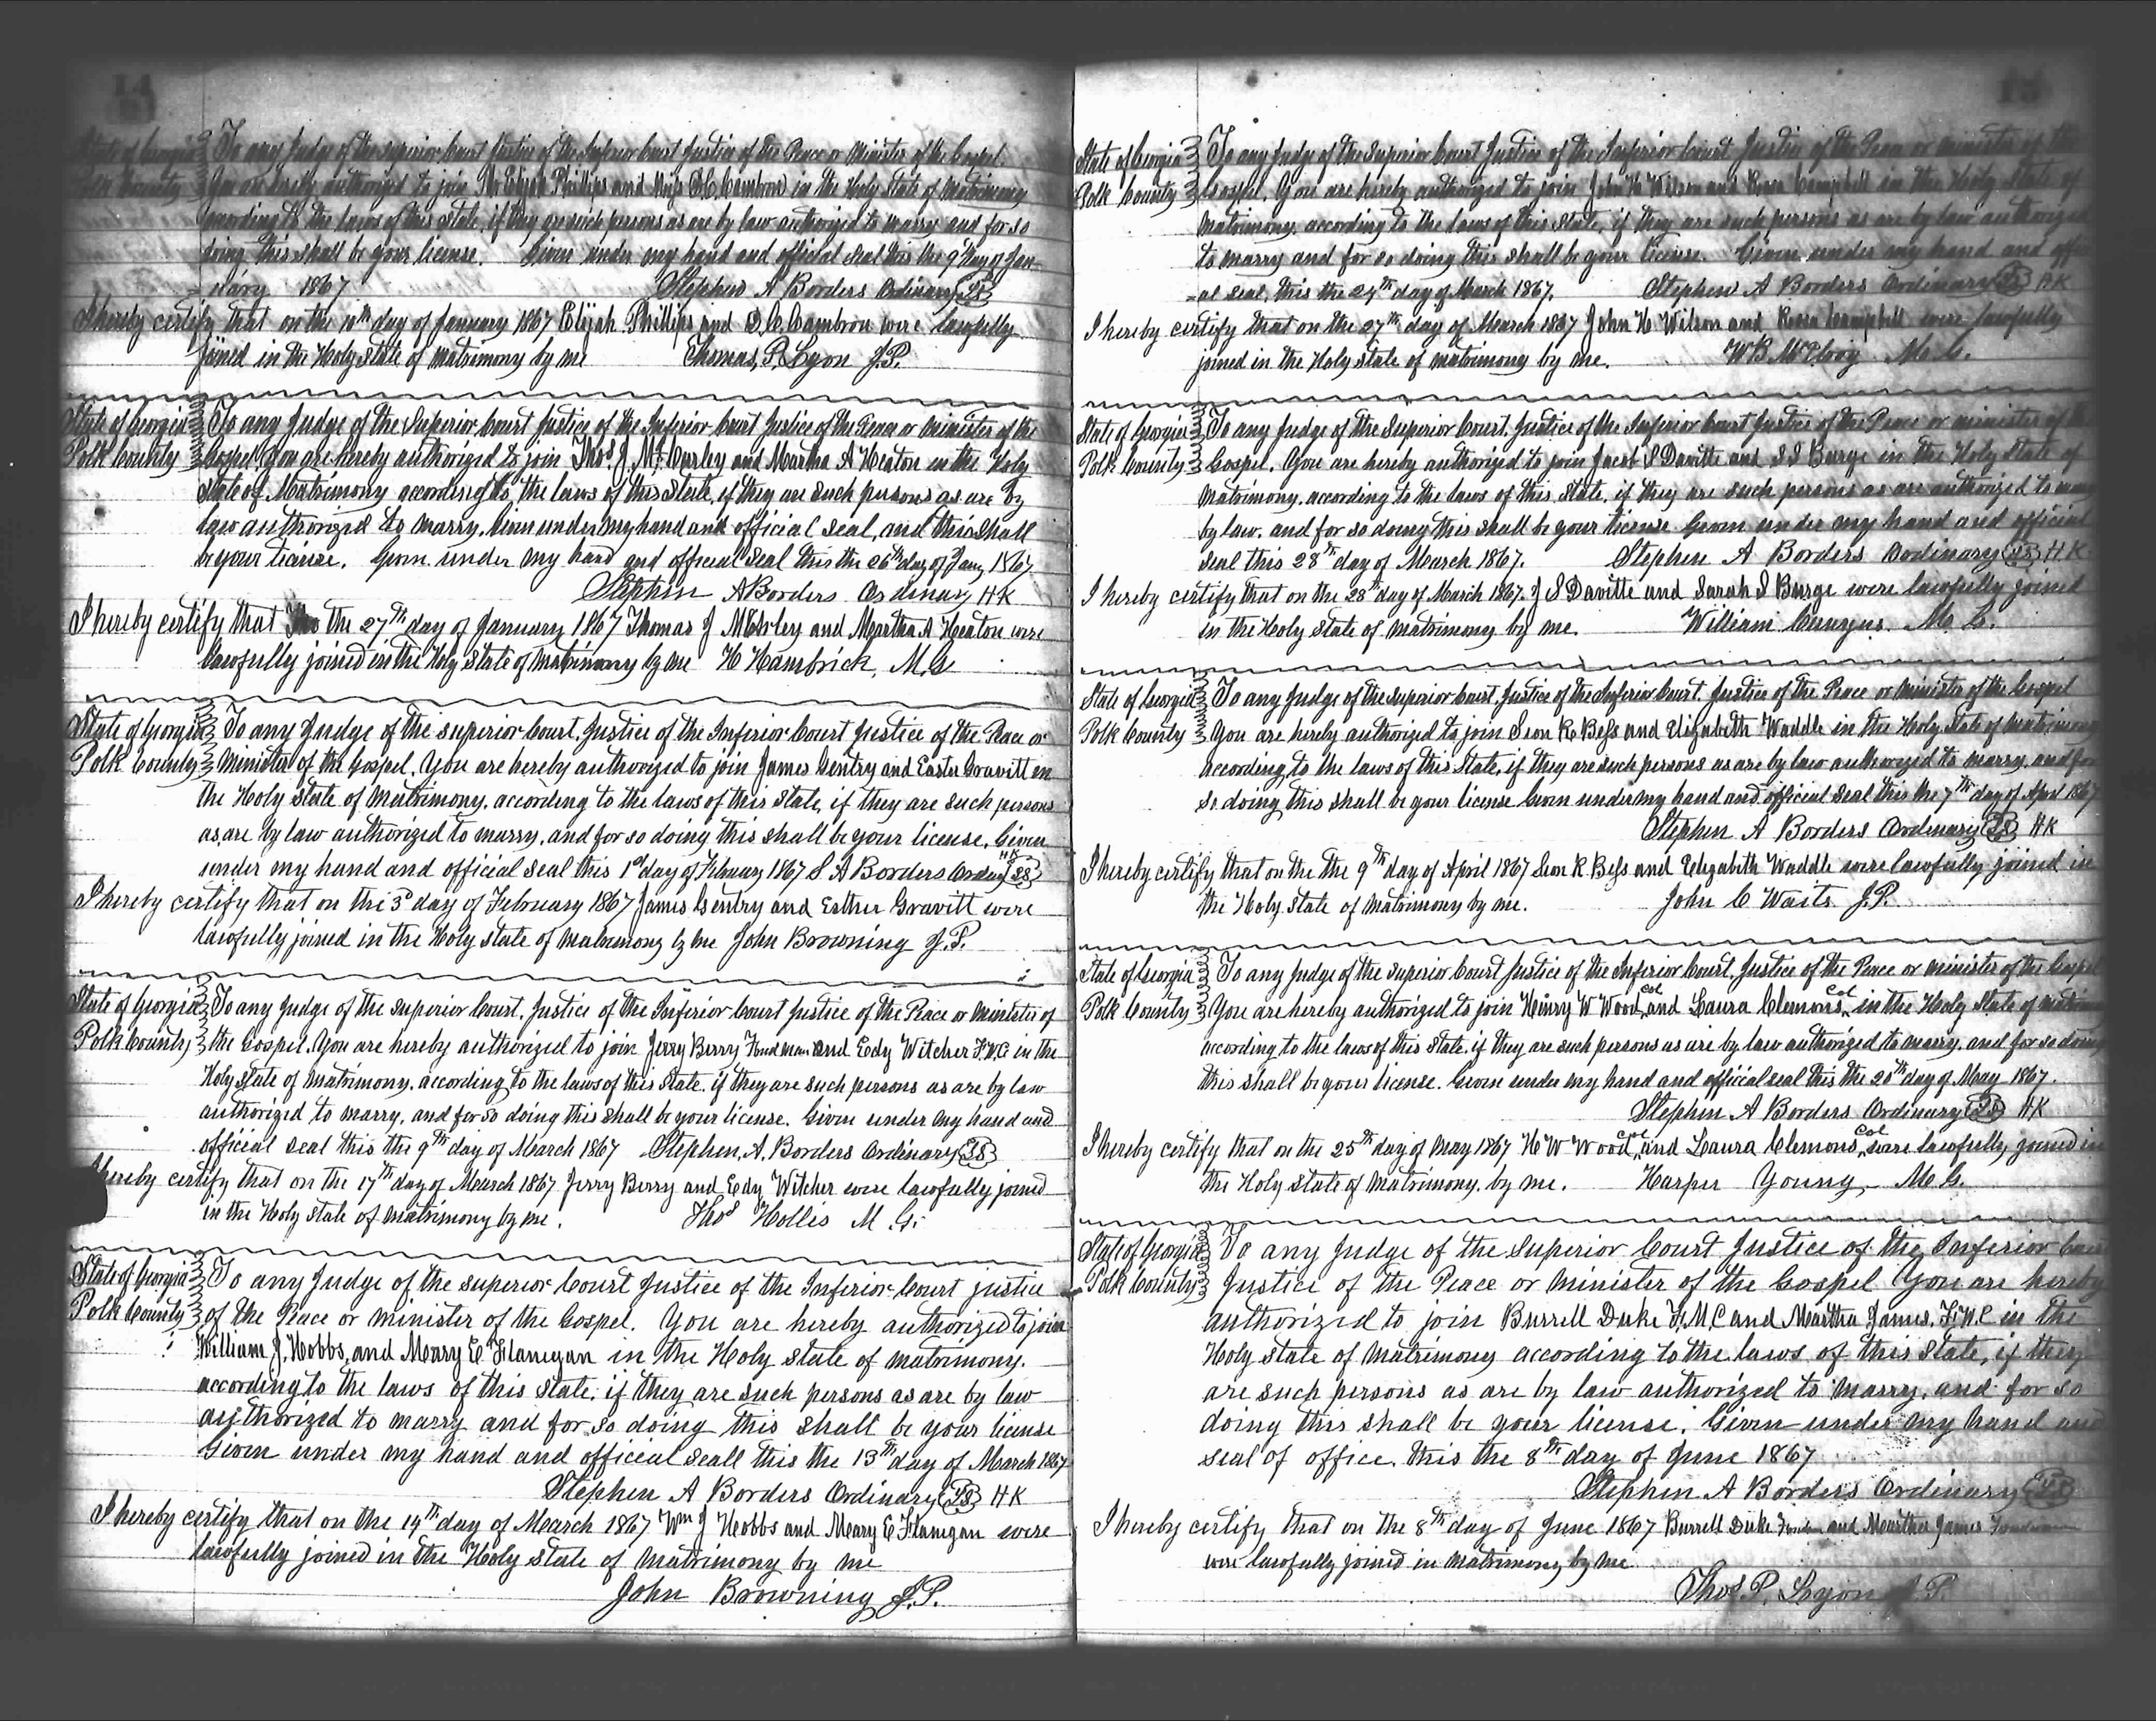 14
State of Georgia To any Judge of the Superior Court Justice of the Inferior Court Justice of the Peace or Minister of the Gospel
Polk County You are hereby authorized to join Mr Elijah Phillips and Miss D. C. Cambron in the Holy State of Matrimony
according to the laws of this State, if they are such persons as are by law authorized to marry and for so
doing this shall be your license. Given under my hand and official seal this the 9th day of Jan-
-uary 1867 Stephen A Borders Ordinary LS
I hereby certify that on the 10th day of January 1867 Elijah Phillips and D. C. Cambron were lawfully
joined in the Holy State of matrimony by me Thomas, P. Lyon J.P.
State of Georgia To any Judge of the Superior Court Justice of the Inferior Court Justice of the Peace or minister of the
Polk County Gospel You are hereby authorized to join Thos. J. McCurley and Martha A Heaton in the Holy
State of Matrimony according to, the laws of this State, if they are such persons as are by
law authorized to marry. Given under my hand and official seal, and this shall
be your license. Given under my hand and official seal this the 26th day of Jany 1867
Stephen A Borders Ordinary HK
I hereby certify that the 27th day of January 1867 Thomas J and Martha A Heaton were
lawfully joined in the Holy State of matrimony by me H Hambrick, M.G
State of Georgia To any Judge of the superior Court, Justice of the Inferior Court Justice of the Peace or
Polk County Minister of the Gospel. You are hereby authorized to join James Gentry and Easter Gravitt in
the Holy State of Matrimony. according to the laws of this State, if they are such persons
as are by law authorized to marry, and for so doing this shall be your license. Given
under my hand and official seal this 1st day of February 1867 S A Borders Ordny LS HK
I hereby certify that on the 3d day of February 1867 James Gentry and Esther Gravitt were
lawfully joined in the Holy State of matrimony by me John Browning J.P.
State of Georgia To any Judge of the Superior Court. Justice of the Inferior Court Justice of the Peace or Minister of
Polk County the Gospel. You are hereby authorized to join Jerry Berry and Edy Witcher F.W.C in the
Holy State of matrimony. according to the laws of this State. if they are such persons as are by law
authorized to marry, and for so doing this shall be your license. Given under my hand and
official seal this the 9th day of March 1867 Stephen. A. Borders Ordinary LS
hereby certify that on the 17th day of March 1867. Jerry Berry and Edy Witcher were lawfully joined
in the Holy State of matrimony by me. Thos Hollis M G.
State of Georgia To any Judge of the superior Court Justice of the Inferior Court justice
Polk County of the Peace or minister of the Gospel. You are hereby authorized to join
William J. Hobbs, and Mary E Flanigan in the Holy State of matrimony.
according to the laws of this State. if they are such persons as are by law
authorized to marry and for so doing this shall be your license
Given under my hand and official seall this the 13th day of March 1867
Stephen A Borders Ordinary LS HK
I hereby certify that on the 14th day of March 1867 Wm J Hobbs and Mary E Flanigan were
lawfully joined in the Holy State of matrimony by me
John Browning J.P.
State of Georgia To any Judge of the Superior Court Justice of the Inferior Court Justice of the Peace or minister of the
Polk County Gospel. You are hereby authorized to join John H Wilson and Campbell in the Holy State of
Matrimony, according to the laws of this State, if they are such persons as are by law authorized
to marry and for so doing this shall be your license. Given under my hand and offi
-al seal, this the 24th day of March 1867. Stephen A Borders Ordinary LS HK
I hereby certify that on the 27th day of March 1867 John H Wilson and Campbell were lawfully
joined in the Holy State of matrimony by me. W B McElroy M. G.
State of Georgia To any Judge of the Superior Court. Justice of the Inferior Court Justice of the Peace or minister of
Polk County Gospel. You are hereby authorized to join Jacob S Davitte and S S Burge in the Holy State of
Matrimony. according to the laws of this State, if they are such persons as are authorized to marry
by law. and for so doing this shall be your license Given under my hand and official
seal this 28th day of March 1867. Stephen A Borders Ordinary LS HK
I hereby certify that on the 28th day of March 1867. J S Davitte and Sarah S Burge were lawfully joined
in the Holy State of matrimony by me. William M. G.
State of Georgia To any Judge of the Superior Court, Justice of the Inferior Court. Justice of the Peace or Minister of the Gospel
Polk County You are hereby authorized to join Leon R Bess and Elizabeth Waddle in the Holy State of matrimony
according to the laws of this State, if they are such persons as are by law authorized to marry, and for
so doing this shall be your license Given under my hand and official seal this the 7th day of April 1867
Stephen A Borders Ordinary LS HK
I hereby certify that on the the 9th day of April 1867 Leon R Bess and Elizabeth Waddle were lawfully joined in
the Holy State of matrimony by me. John C Waits J.P.
State of Georgia To any Judge of the Superior Court Justice of the Inferior Court. Justice of the Peace or minister of the Gospel
Polk County You are hereby authorized to join Henry W Wood Col and Laura Clemons Col in the Holy State of matrim
according to the laws of this State. if they are such persons as are by law authorized to marry. and for so doing
this shall be your license. Given under my hand and official seal this the 20th day of May 1867.
Stephen A Borders Ordinary LS HK
I hereby certify that on the 25th day of May 1867 H W Wood Col and Laura Clemons Col were lawfully joined in
the Holy State of matrimony. by me. Harper Young M G.
State of Georgia To any Judge of the Superior Court Justice of the Inferior Court
Polk County Justice of the Peace or minister of the Gospel You are hereby
authorized to join Burrell Duke F.M.C and Martha James. F.W.C in the
Holy State of Matrimony according to the laws of this State, if they
are such persons as are by law authorized to marry, and for so
doing this shall be your license. Given under my hand and
seal of office. this the 8th day of June 1867
Stephen A Borders Ordinary LS
I hereby certify that on the 8th day of June 1867 Burrell Duke and Martha James
were lawfully joined in matrimony by me
Thos. P. Lyon J P.